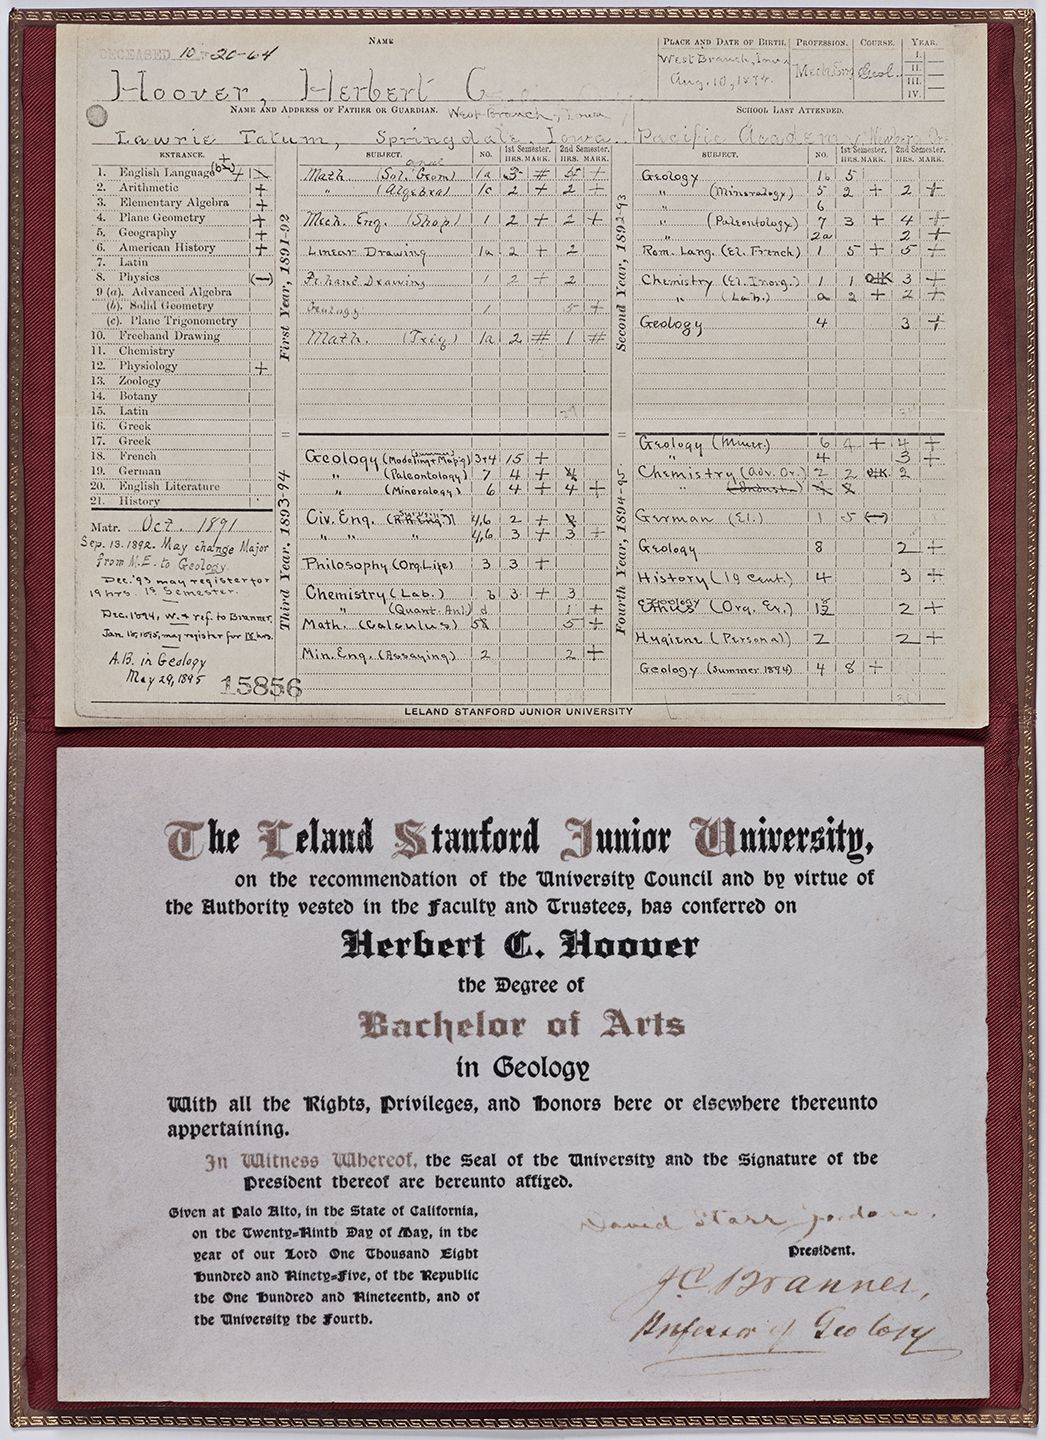 DECEASED 10-20-64
NAME
PLACE AND DATE OF BIRTH.
PROFESSION.
COURSE.
YEAR.
Hoover, Herbert C
West Branch, Iowa
Aug. 10, 1874.
Mech. Eng
Geol.
I.
II.
III.
IV.
NAME AND ADDRESS OF FATHER OR GUARDIAN.
West Branch, Iowa
SCHOOL LAST ATTENDED.
Lawrie Tatum, Springdale, Iowa.
Pacific Academy, Newberg, Ore
ENTRANCE.
1. English Language
2. Arithmetic +
3. Elementary Algebra +
4. Plane Geometry +
5. Geography +
6. American History +
7. Latin
8. Physics (—)
9 (a). Advanced Algebra
(b). Solid Geometry
(c). Plane Trigonometry
10. Freehand Drawing
11. Chemistry
12. Physiology +
13. Zoology
14. Botany
15. Latin
16. Greek
17. Greek
18. French
19. German
20. English Literature
21. History
Matr. Oct. 1891
Sep. 13. 1892. May change Major
from M.E. to Geology
Dec. '93 may register for
19 hrs. 1st Semester.
Dec. 1894, W. + ref. to Branner.
Jan. 15, 1895, may register for 18 hrs.
A.B. in Geology
May 29, 1895
15856
First Year, 1891-92
SUBJECT. NO. 1st Semester. HRS. MARK. 2nd Semester. HRS. MARK.
Math (Sol. Geom) 1a 3 # 5 +
" (Algebra) 1c 2 + 2 +
Mech. Eng. (Shop) 1 2 + 2 +
Linear Drawing 1a 2 + 2
Fr. hand Drawing 1 2 + 2
Geology 1 5 +
Math. (Trig) 1a 2 # 1 #
Second Year, 1892-93
SUBJECT. NO. 1st Semester. HRS. MARK. 2nd Semester. HRS. MARK.
Geology 1b 5
" (Mineralogy) 5 2 + 2 +
" 6
" (Paleontology) 7 3 + 4 +
2a 2 +
Rom. Lang. (El. French) 1 5 + 5 +
Chemistry (El. Inorg.) 1 1 3 +
" (Lab.) a 2 + 2 +
Geology 4 3 +
Third Year, 1893-94
Geology (Modeling + Map'g) 3+4 15 +
" (Paleontology) 7 4 + 4
" (Mineralogy) 6 4 + 4 +
Civ. Eng. 4,6 2 +
" " " 4,6 3 + 3 +
Philosophy (Org. Life) 3 3 +
Chemistry (Lab.) b 3 + 3
" (Quant. Anl.) d 1 +
Math. (Calculus) 5 +
Min. Eng. (Assaying) 2 2 +
Fourth Year, 1894-95
Geology (Miner.) 6 4 + 4 +
" 4 3 +
Chemistry (Adv. Or.) 2 2 2
German (El.) 1 5 (—)
Geology 8 2 +
History (19 Cent.) 4 3 +
Ethics (Org. Ev.) 2 +
Hygiene (Personal) 2 2 +
Geology (Summer 1894) 4 8 +
LELAND STANFORD JUNIOR UNIVERSITY
The Leland Stanford Junior University,
on the recommendation of the University Council and by virtue of
the Authority vested in the Faculty and Trustees, has conferred on
Herbert C. Hoover
the Degree of
Bachelor of Arts
in Geology
With all the Rights, Privileges, and Honors here or elsewhere thereunto
appertaining.
In Witness Whereof, the Seal of the University and the Signature of the
President thereof are hereunto affixed.
Given at Palo Alto, in the State of California,
on the Twenty-Ninth Day of May, in the
year of our Lord One Thousand Eight
Hundred and Ninety-Five, of the Republic
the One Hundred and Nineteenth, and of
the University the Fourth.
David Starr Jordan.
President.
J C Branner,
Professor of Geology